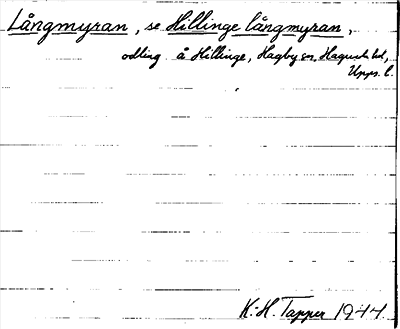 Långmyran, se Hillinge långmyran,
odling å Hillinge, Hagby sn, Hagunda hd,
Upps. l.
K.-H. Tapper 1944.